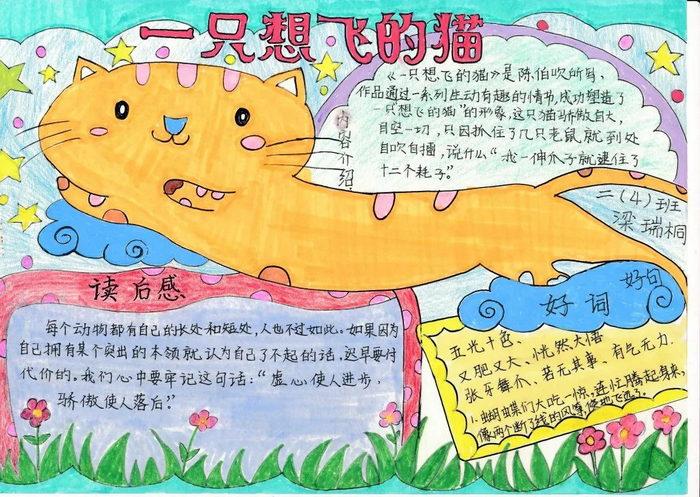 一只想飞的猫
内容介绍
《一只想飞的猫》是陈伯吹所写，
作品通过一系列生动有趣的情节，成功塑造了
一只"想飞的猫"的形象，这只猫骄傲自大，
目空一切，只因抓住了几只老鼠就到处
自吹自擂，说什么"我一伸爪子就逮住了
十二个耗子"。
二（4）班
梁瑞桐
读后感
每个动物都有自己的长处和短处，人也不过如此。如果因为
自己拥有某个突出的本领就认为自己了不起的话，迟早要付
代价的。我们心中要牢记这句话："虚心使人进步，
骄傲使人落后。"
好词
好句
五光十色、
又肥又大、恍然大悟
张牙舞爪、若无其事、有气无力
1.蝴蝶们大吃一惊，连忙腾起身来，
像两个断了线的风筝，